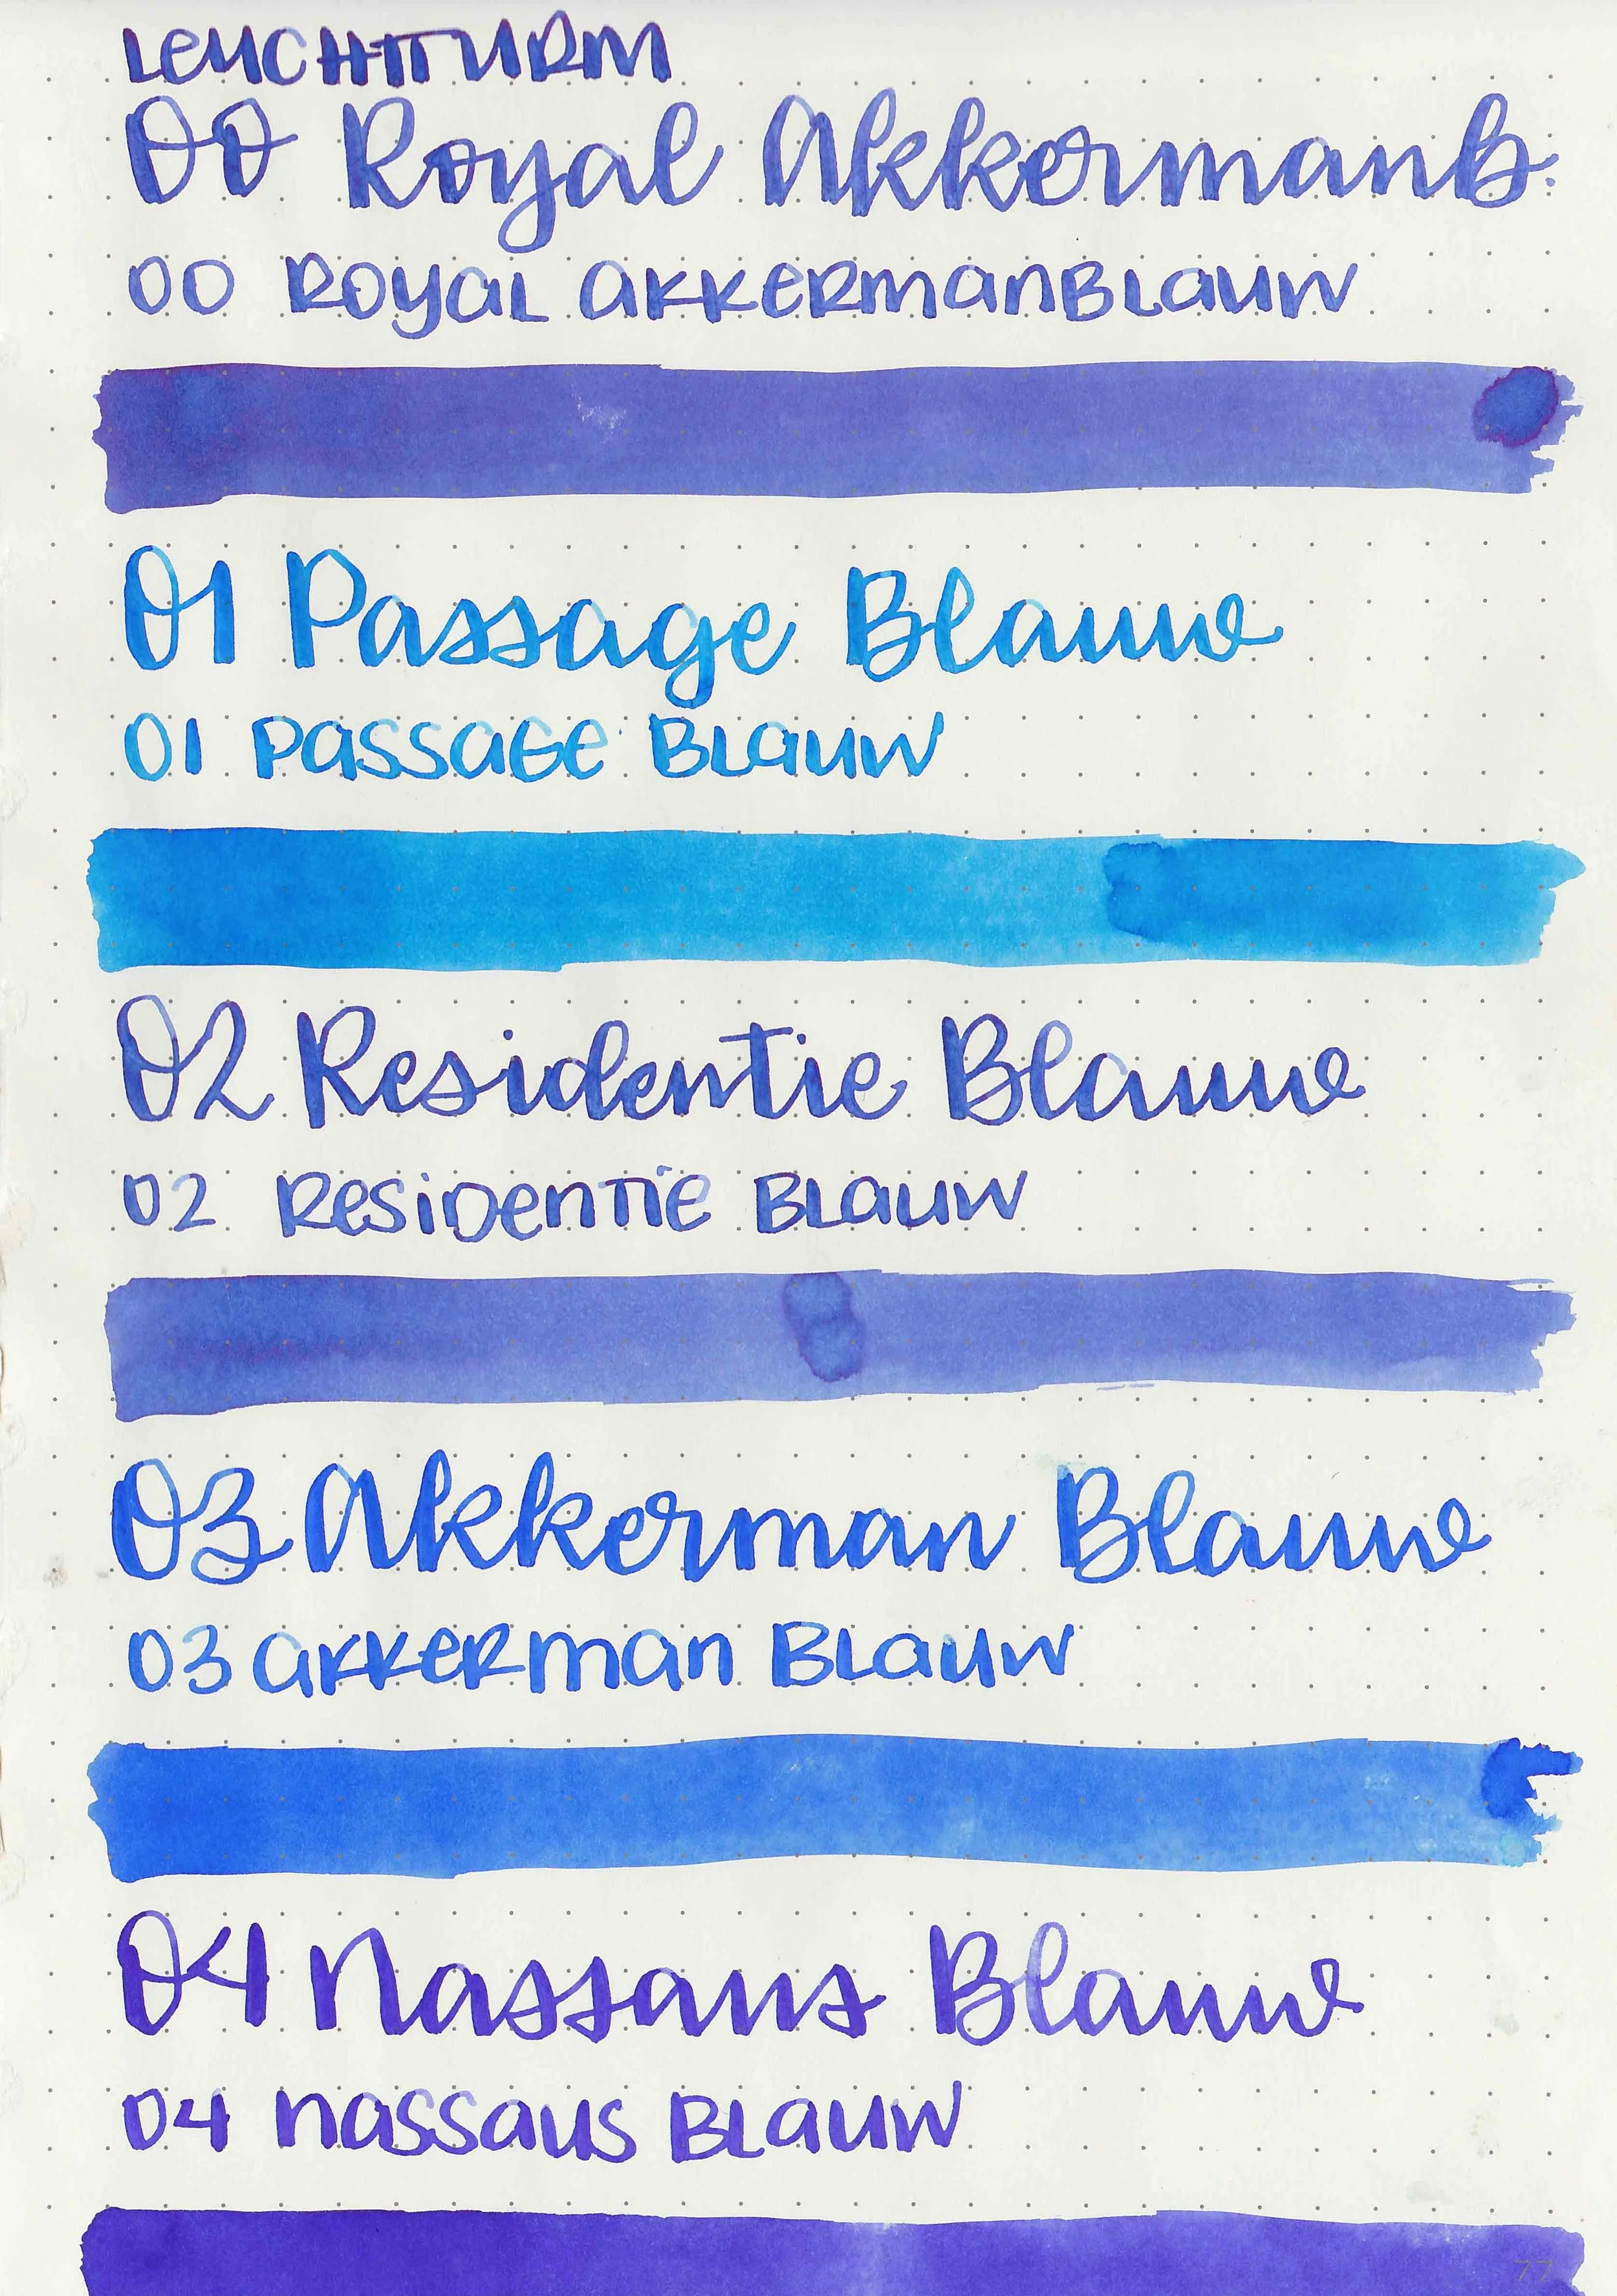 LEUCHTTURM
00 Royal AkkermanB.
00 ROYAL AKKERMANBLAUW
01 Passage Blauw
01 PASSAGE BLAUW
02 Residentie Blauw
02 RESIDENTIE BLAUW
03 Akkerman Blauw
03 AKKERMAN BLAUW
04 Nassaus Blauw
04 NASSAUS BLAUW
77